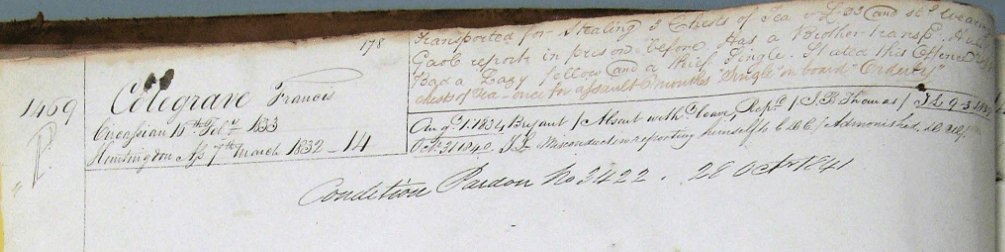 178
1469
P
Colegrave Francis
Circassian 16th Feby 1833
Huntingdon Ass 7th March 1832 - 14
Transported for Stealing 3 Chests of Tea and
Gaol report in prison before Has a Brother transpd
Bad a Lazy fellow and a thief Single Stated this Offence
chests of Tea once for assault 6 months Single on board Orderly
Augt 1. 1834, Bryant / Absent without leave, Repd / J.L. 9. 3. 
Oct 31 1840. T.L. Misconduct in reporting himself to C.D.C. / Admonished.
Condition Pardon No 3422. 28 Octr 1841